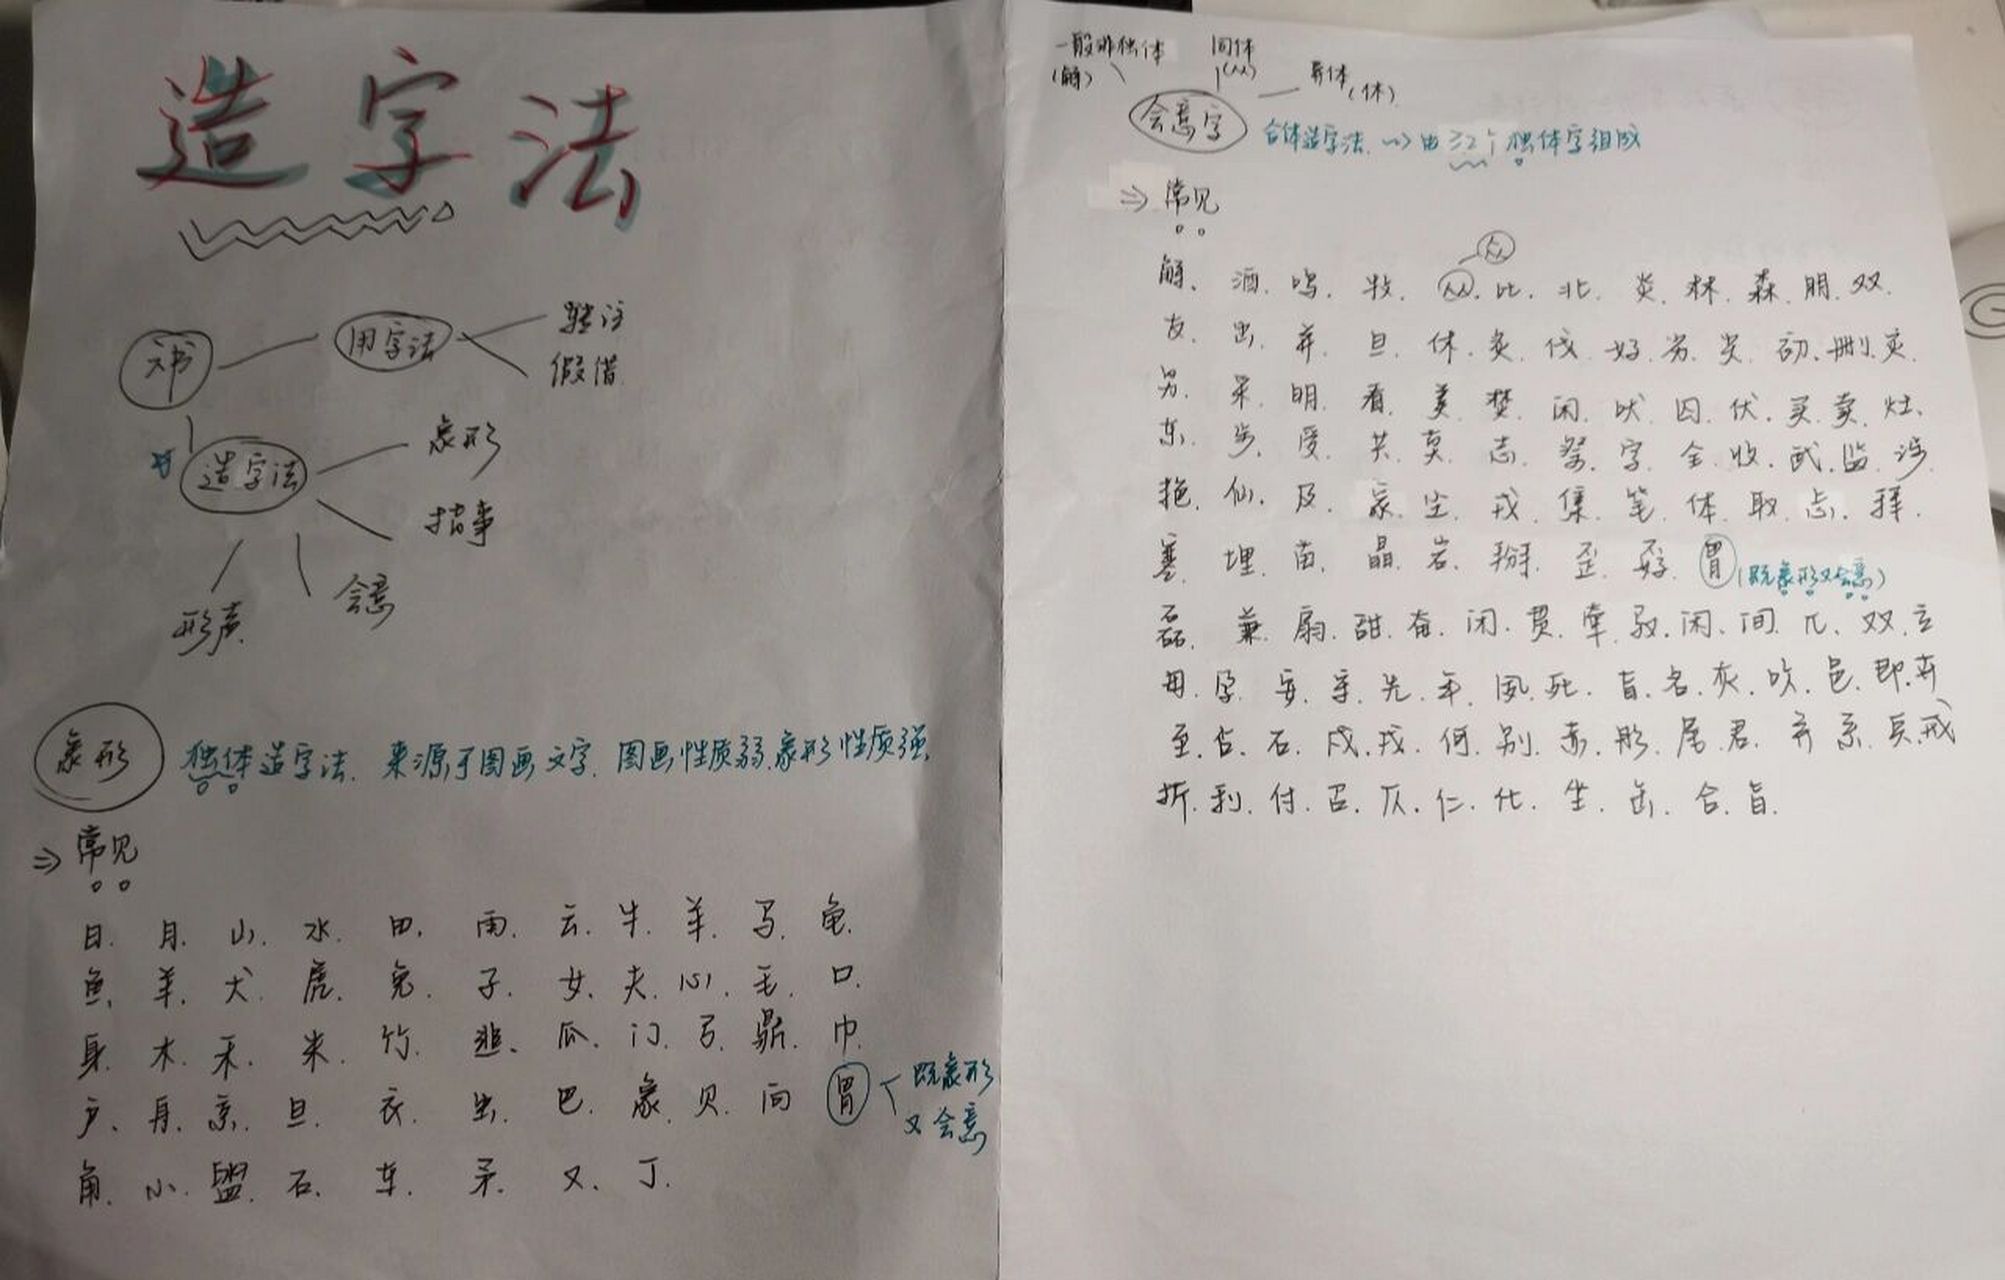 造字法
六书
用字法
转注
假借
造字法
象形
指事
会意
形声
象形 独体造字法 来源于图画文字 图画性质弱,象形性质强
⇒ 常见
日. 月. 山. 水. 田. 雨. 云. 牛. 羊. 马. 龟.
鱼. 羊. 犬. 虎. 兔. 子. 女. 夫. 心. 毛. 口.
身. 木. 禾. 米. 竹. 瓜. 门. 弓. 鼎. 巾.
户. 丹. 京. 旦. 衣. 出. 巴. 象. 贝. 向 胃
既象形
又会意
角. 小. 石. 车. 矛. 又. 丁.
一般非独体
(解)
同体
(从)
异体
(休)
会意字 合体造字法 ~> 由≥2个独体字组成
⇒ 常见
众
解. 酒. 鸣. 牧. 从. 比. 北. 炎. 林. 森. 朋. 双.
友. 出. 弄. 旦. 休. 炙. 伐. 好. 劣. 初. 删.
男. 采. 明. 看. 美. 焚. 闲. 吠. 囚. 伏. 买. 卖. 灶.
东. 步. 受. 共. 莫. 志. 祭. 字. 全. 收. 武. 监. 涉.
艳. 仙. 及. 家. 尘. 戎. 集. 笔. 体. 取. 忐. 拜.
塞. 埋. 苗. 晶. 岩. 掰. 歪. 孬. 胃 (既象形又会意)
磊. 兼. 扇. 甜. 奋. 闭. 贯. 牵. 闲. 间. 兀. 双. 立
毋. 孕. 妄. 字. 先. 年. 凤. 死. 盲. 名. 灰. 吹. 邑. 即. 弃
至. 占. 石. 戍. 戎. 何. 别. 赤. 彤. 尾. 君. 弃 系. 兵. 戒
折. 利. 付. 召. 仄. 仁. 化. 坐. 缶. 合. 旨.